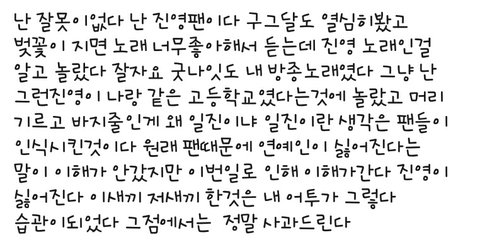 난 잘못이없다 난 진영팬이다 구그달도 열심히봤고
벚꽃이 지면 노래 너무좋아해서 듣는데 진영 노래인걸
알고 놀랐다 잘자요 굿나잇도 내 방종노래였다 그냥 난
그런진영이 나랑 같은 고등학교였다는것에 놀랐고 머리
기르고 바지줄인게 왜 일진이냐 일진이란 생각은 팬들이
인식시킨것이다 원래 팬때문에 연예인이 싫어진다는
말이 이해가 안갔지만 이번일로 인해 이해가간다 진영이
싫어진다 이새끼 저새끼 한것은 내 어투가 그렇다
습관이되었다 그점에서는 정말 사과드린다